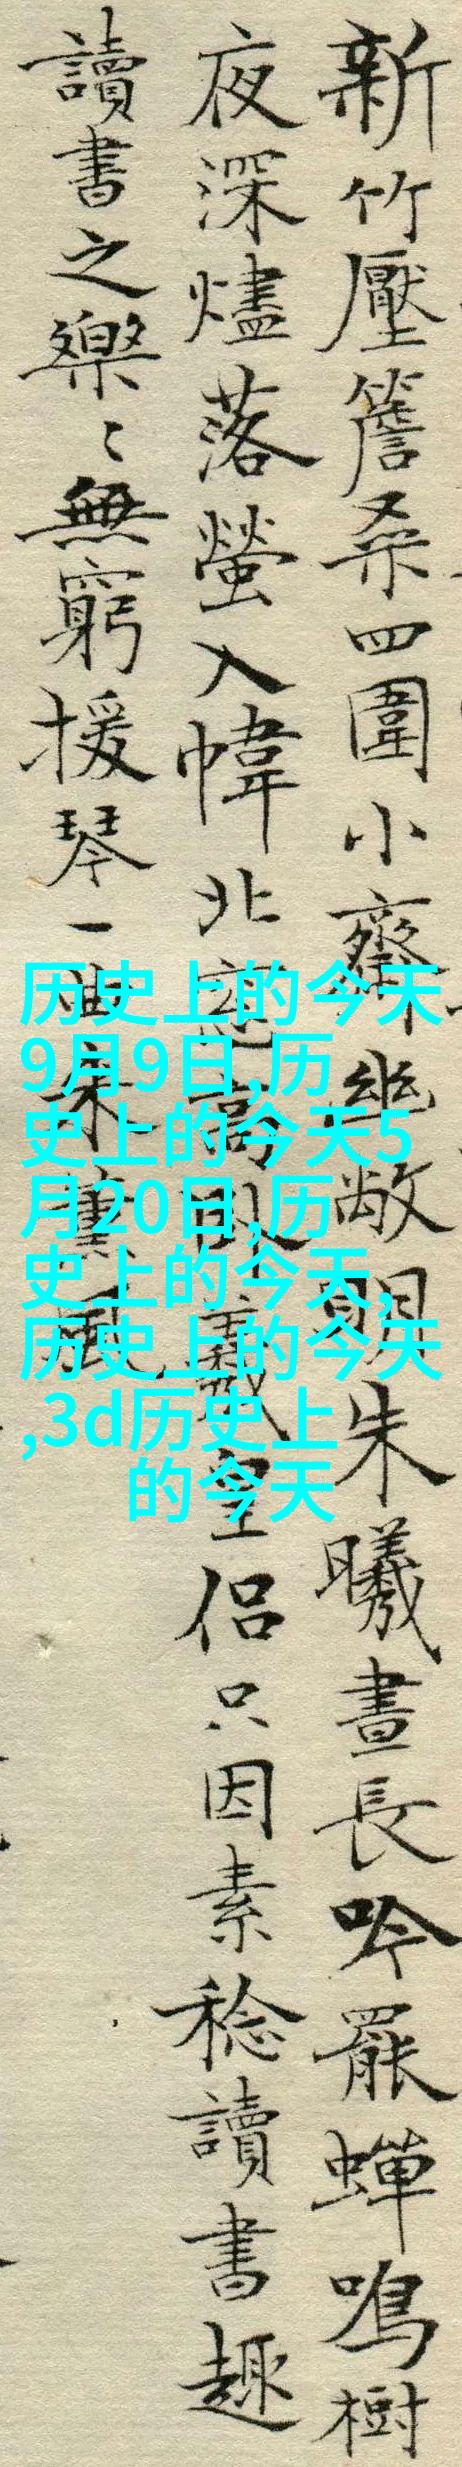 新竹壓簷桑四圍小齋幽敞明朱曦晝長吟罷蟬鳴樹
夜深燼落螢入幃北窓高臥羲皇侶只因素稔讀書趣
讀書之樂〻無窮援琴一曲來薰風
历史上的今天
9月9日,历
史上的今天5
月20日,历
史上的今天,
历史上的今天
,3d历史上
的今天